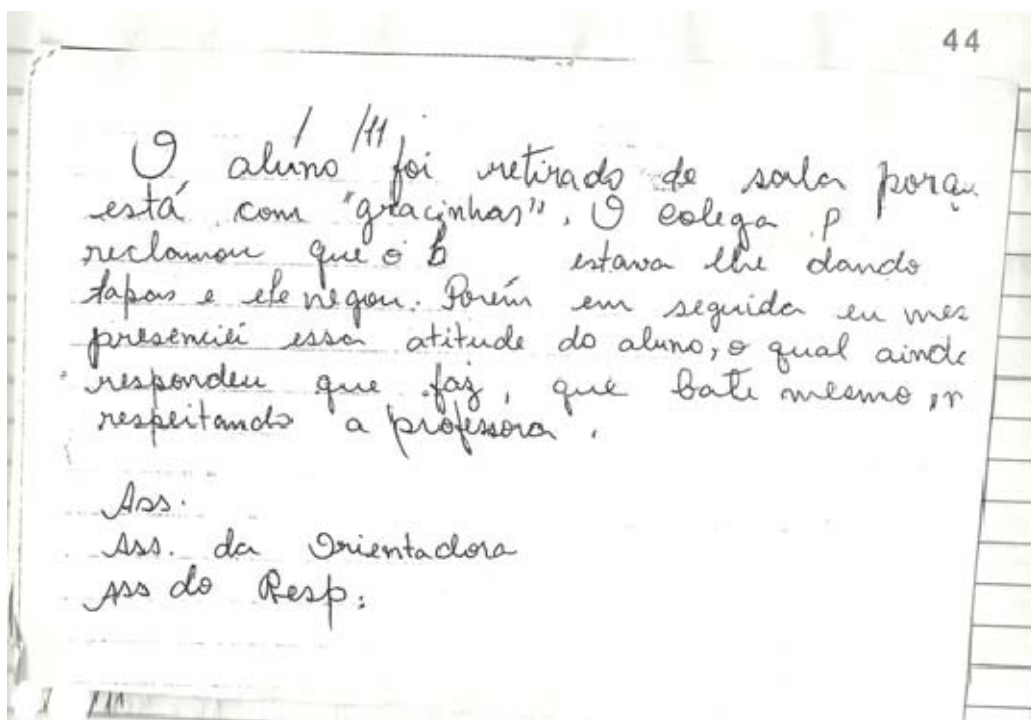 44
/ /11
O aluno foi retirado de sala porqu
está com "gracinhas". O colega P
reclamou que o B estava lhe dando
tapas e ele negou. Porém em seguida eu mes
presenciei essa atitude do aluno, o qual ainda
respondeu que faz, que bate mesmo, n
respeitando a professora.
Ass.
Ass. da Orientadora
Ass do Resp:
/ /11